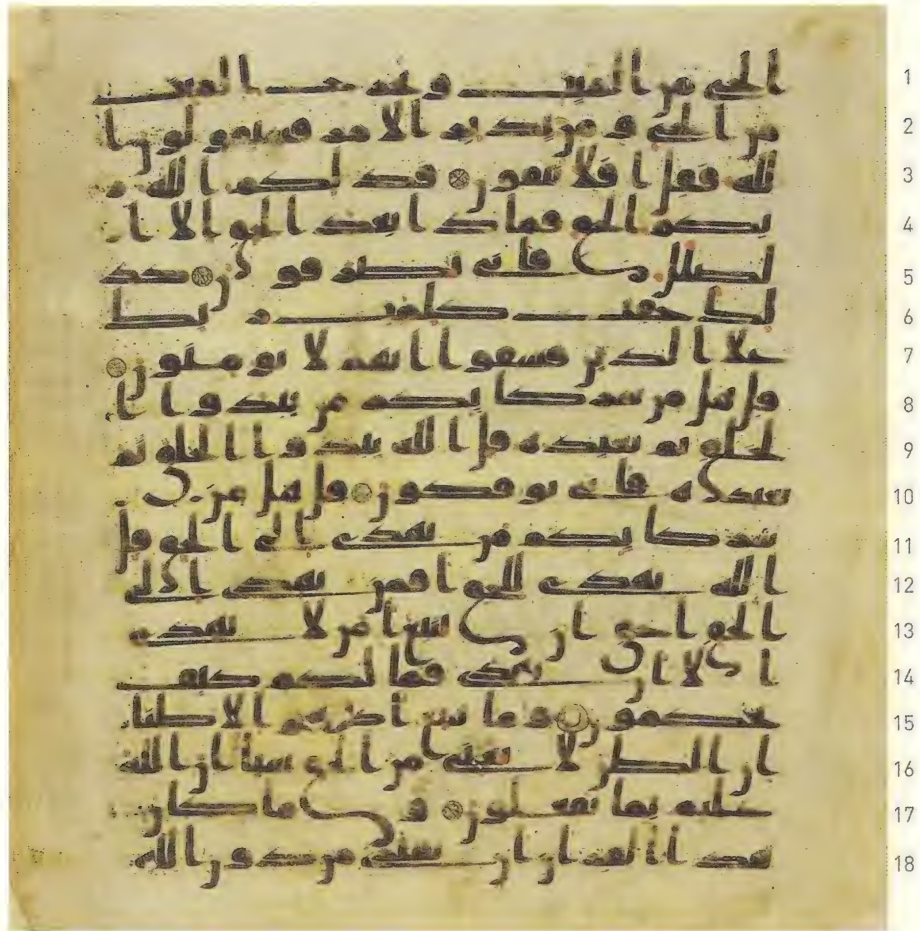 1 الحي من الميت ويخرج الميت
2 من الحي ومن يدبر الامر فسيقولون ا
3 لله فقل افلا تتقون فذلكم الله ر
4 بكم الحق فماذا بعد الحق الا ا
5 لضلل فانى تصرفون كذ
6 لك حقت كلمت ربك
7 على الذين فسقوا انهم لا يومنون
8 قل هل من شركايكم من يبدوا ا
9 لخلق ثم يعيده قل الله يبدوا الخلق ثم
10 يعيده فانى توفكون قل هل من
11 شركايكم من يهدي الى الحق قل
12 الله يهدي للحق افمن يهدي الى
13 الحق احق ان يتبع امن لا يهدي
14 الا ان يهدى فما لكم كيف
15 تحكمون وما يتبع اكثرهم الا ظنا
16 ان الظن لا يغني من الحق شيا ان الله
17 عليم بما يفعلون وما كان
18 هذا القران ان يفترى من دون الله